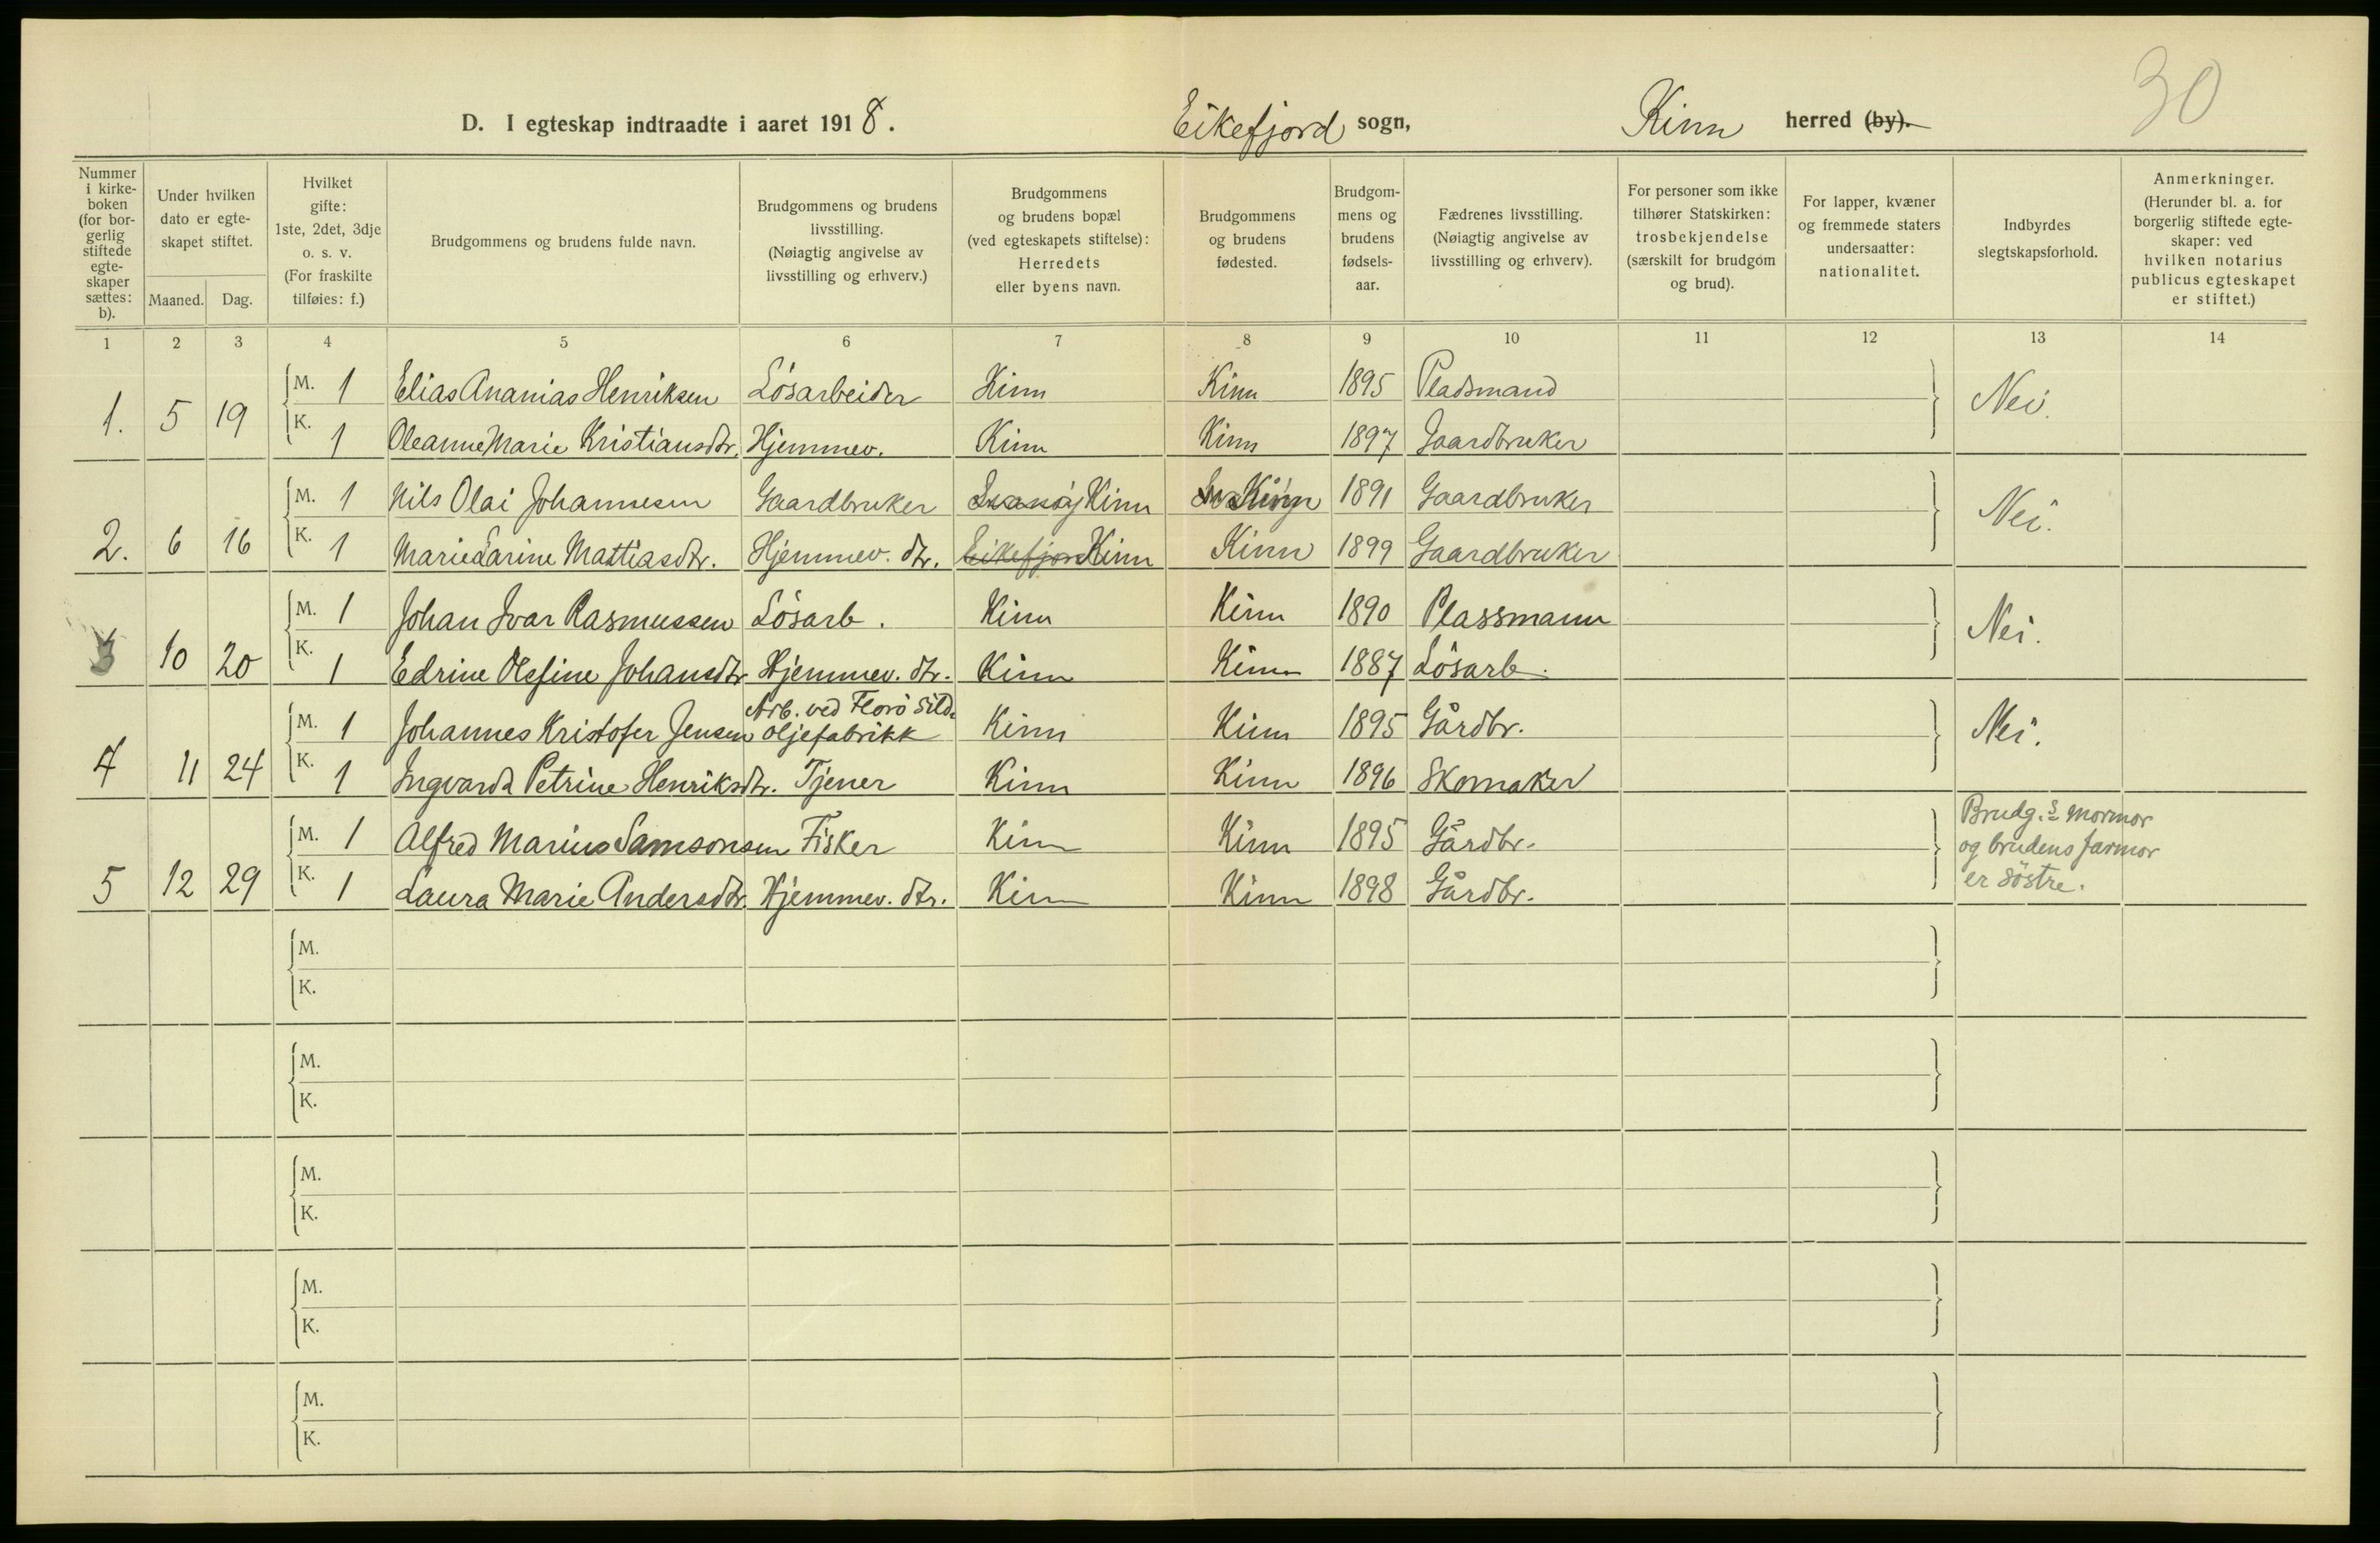 30
D. I egteskap indtraadte i aaret 1918. Eikefjord sogn, Kinn herred (by).
Nummer i kirke-boken (for bor-gerlig stiftede egte-skaper sættes: b).
Under hvilken dato er egte-skapet stiftet.
Maaned. Dag.
Hvilket gifte: 1ste, 2det, 3dje o. s. v. (For fraskilte tilføies: f.)
Brudgommens og brudens fulde navn.
Brudgommens og brudens livsstilling. (Nøiagtig angivelse av livsstilling og erhverv.)
Brudgommens og brudens bopæl (ved egteskapets stiftelse): Herredets eller byens navn.
Brudgommens og brudens fødested.
Brudgom-mens og brudens fødsels-aar.
Fædrenes livsstilling. (Nøiagtig angivelse av livsstilling og erhverv).
For personer som ikke tilhører Statskirken: trosbekjendelse (særskilt for brudgom og brud).
For lapper, kvæner og fremmede staters undersaatter: nationalitet.
Indbyrdes slegtskapsforhold.
Anmerkninger. (Herunder bl. a. for borgerlig stiftede egte-skaper: ved hvilken notarius publicus egteskapet er stiftet.)
1 2 3 4 5 6 7 8 9 10 11 12 13 14
M. 1 Elias Ananias Henriksen Lösarbeider Kinn Kinn 1895 Pladsmand
1. 5 19 Nei.
K. 1 Oleanne Marie Kristiansdtr. Hjemmev. Kinn Kinn 1897 Gaardbruker
M. 1 Nils Olai Johannesen Gaardbruker Svanöy Kinn Kinn 1891 Gaardbruker
2. 6 16 Nei.
K. 1 Marie Larine Mattiasdtr. Hjemmev. dtr. Eikefjord Kinn Kinn 1899 Gaardbruker
M. 1 Johan Ivar Rasmussen Lösarb. Kinn Kinn 1890 Plassmann
3 10 20 Nei.
K. 1 Edrine Olefine Johansdtr Hjemmev. dtr. Kinn Kinn 1887 Lösarb.
M. 1 Johannes Kristofer Jensen Arb. ved Florö Sild- oljefabrikk Kinn Kinn 1895 Gårdbr.
4 11 24 Nei.
K. 1 Ingvarda Petrine Henriksdtr. Tjener Kinn Kinn 1896 Skomaker
M. 1 Alfred Marius Samsonsen Fisker Kinn Kinn 1895 Gårdbr.
5 12 29 Brudg.s mormor og brudens farmor er söstre.
K. 1 Laura Marie Andersdtr. Hjemmev. dtr. Kinn Kinn 1898 Gårdbr.
M.
K.
M.
K.
M.
K.
M.
K.
M.
K.